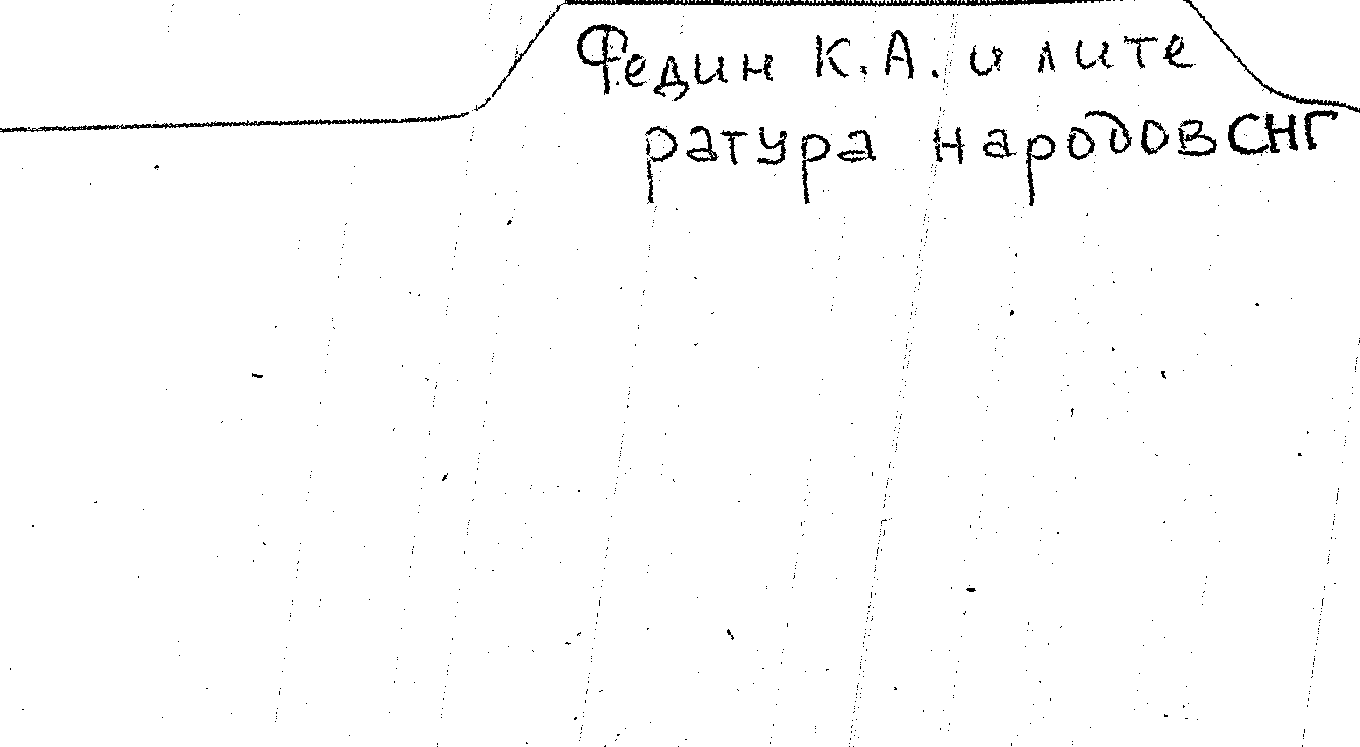 Федин К.А. и лите
ратура народов СНГ